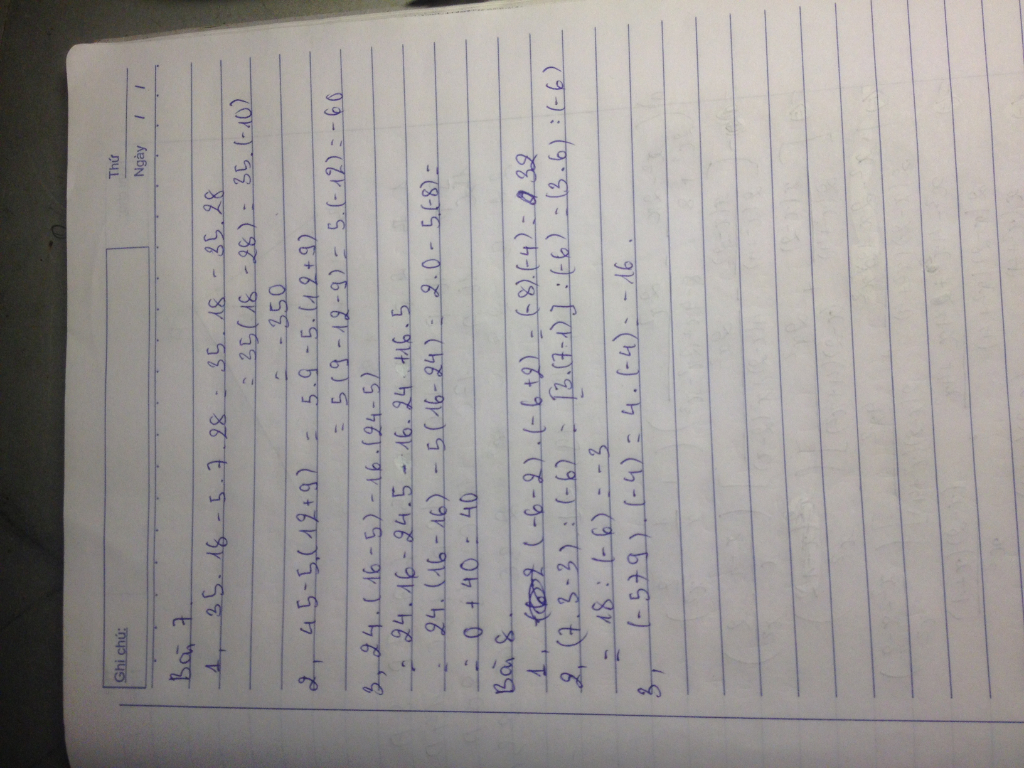 Ghi chú:
Thứ
Ngày / /
Bài 7
1, 35.18 - 5.7.28 = 35.18 - 35.28
= 35.(18 - 28) = 35.(-10)
= -350
2, 45 - 5.(12+9) = 5.9 - 5.(12+9)
= 5(9-12-9) = 5.(-12) = -60
3, 24.(16-5) - 16.(24-5)
= 24.16 - 24.5 - 16.24 + 16.5
= 24.(16-16) - 5(16-24) = 2.0 - 5.(-8) =
= 0 + 40 = 40
Bài 8.
1, (-6-2).(-6+2) = (-8).(-4) = 32
2, (7.3-3) : (-6) = [3.(7-1)] : (-6) = (3.6) : (-6)
= 18 : (-6) = -3
3, (-5+9).(-4) = 4.(-4) = -16.